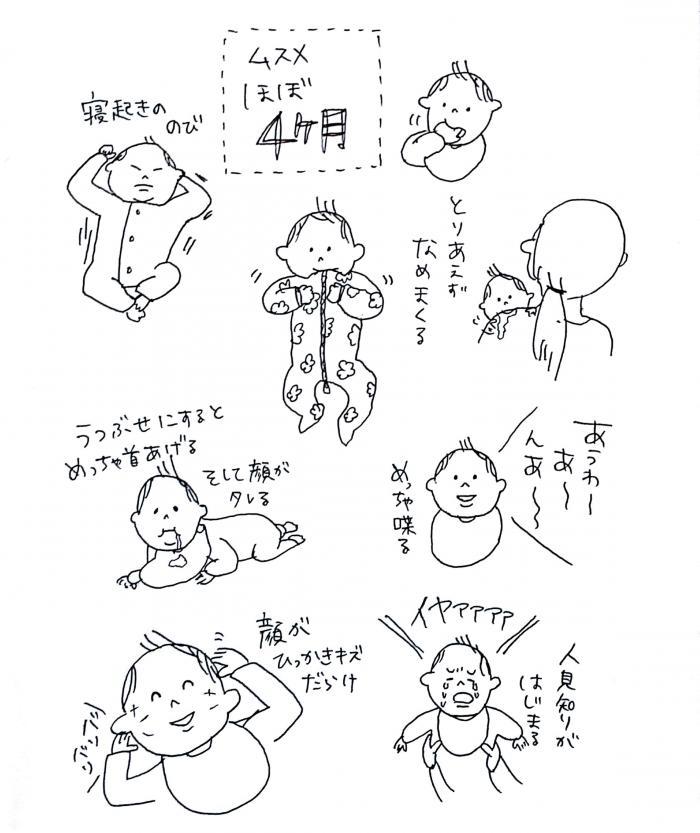 ムスメ
ほぼ
4ヶ月
寝起きの
のび
とりあえず
なめまくる
うつぶせにすると
めっちゃ首あげる
そして顔が
タレる
あうわー
あ〜
んあ〜
めっちゃ喋る
顔が
ひっかきキズ
だらけ
イヤァァァァ
人見知りが
はじまる